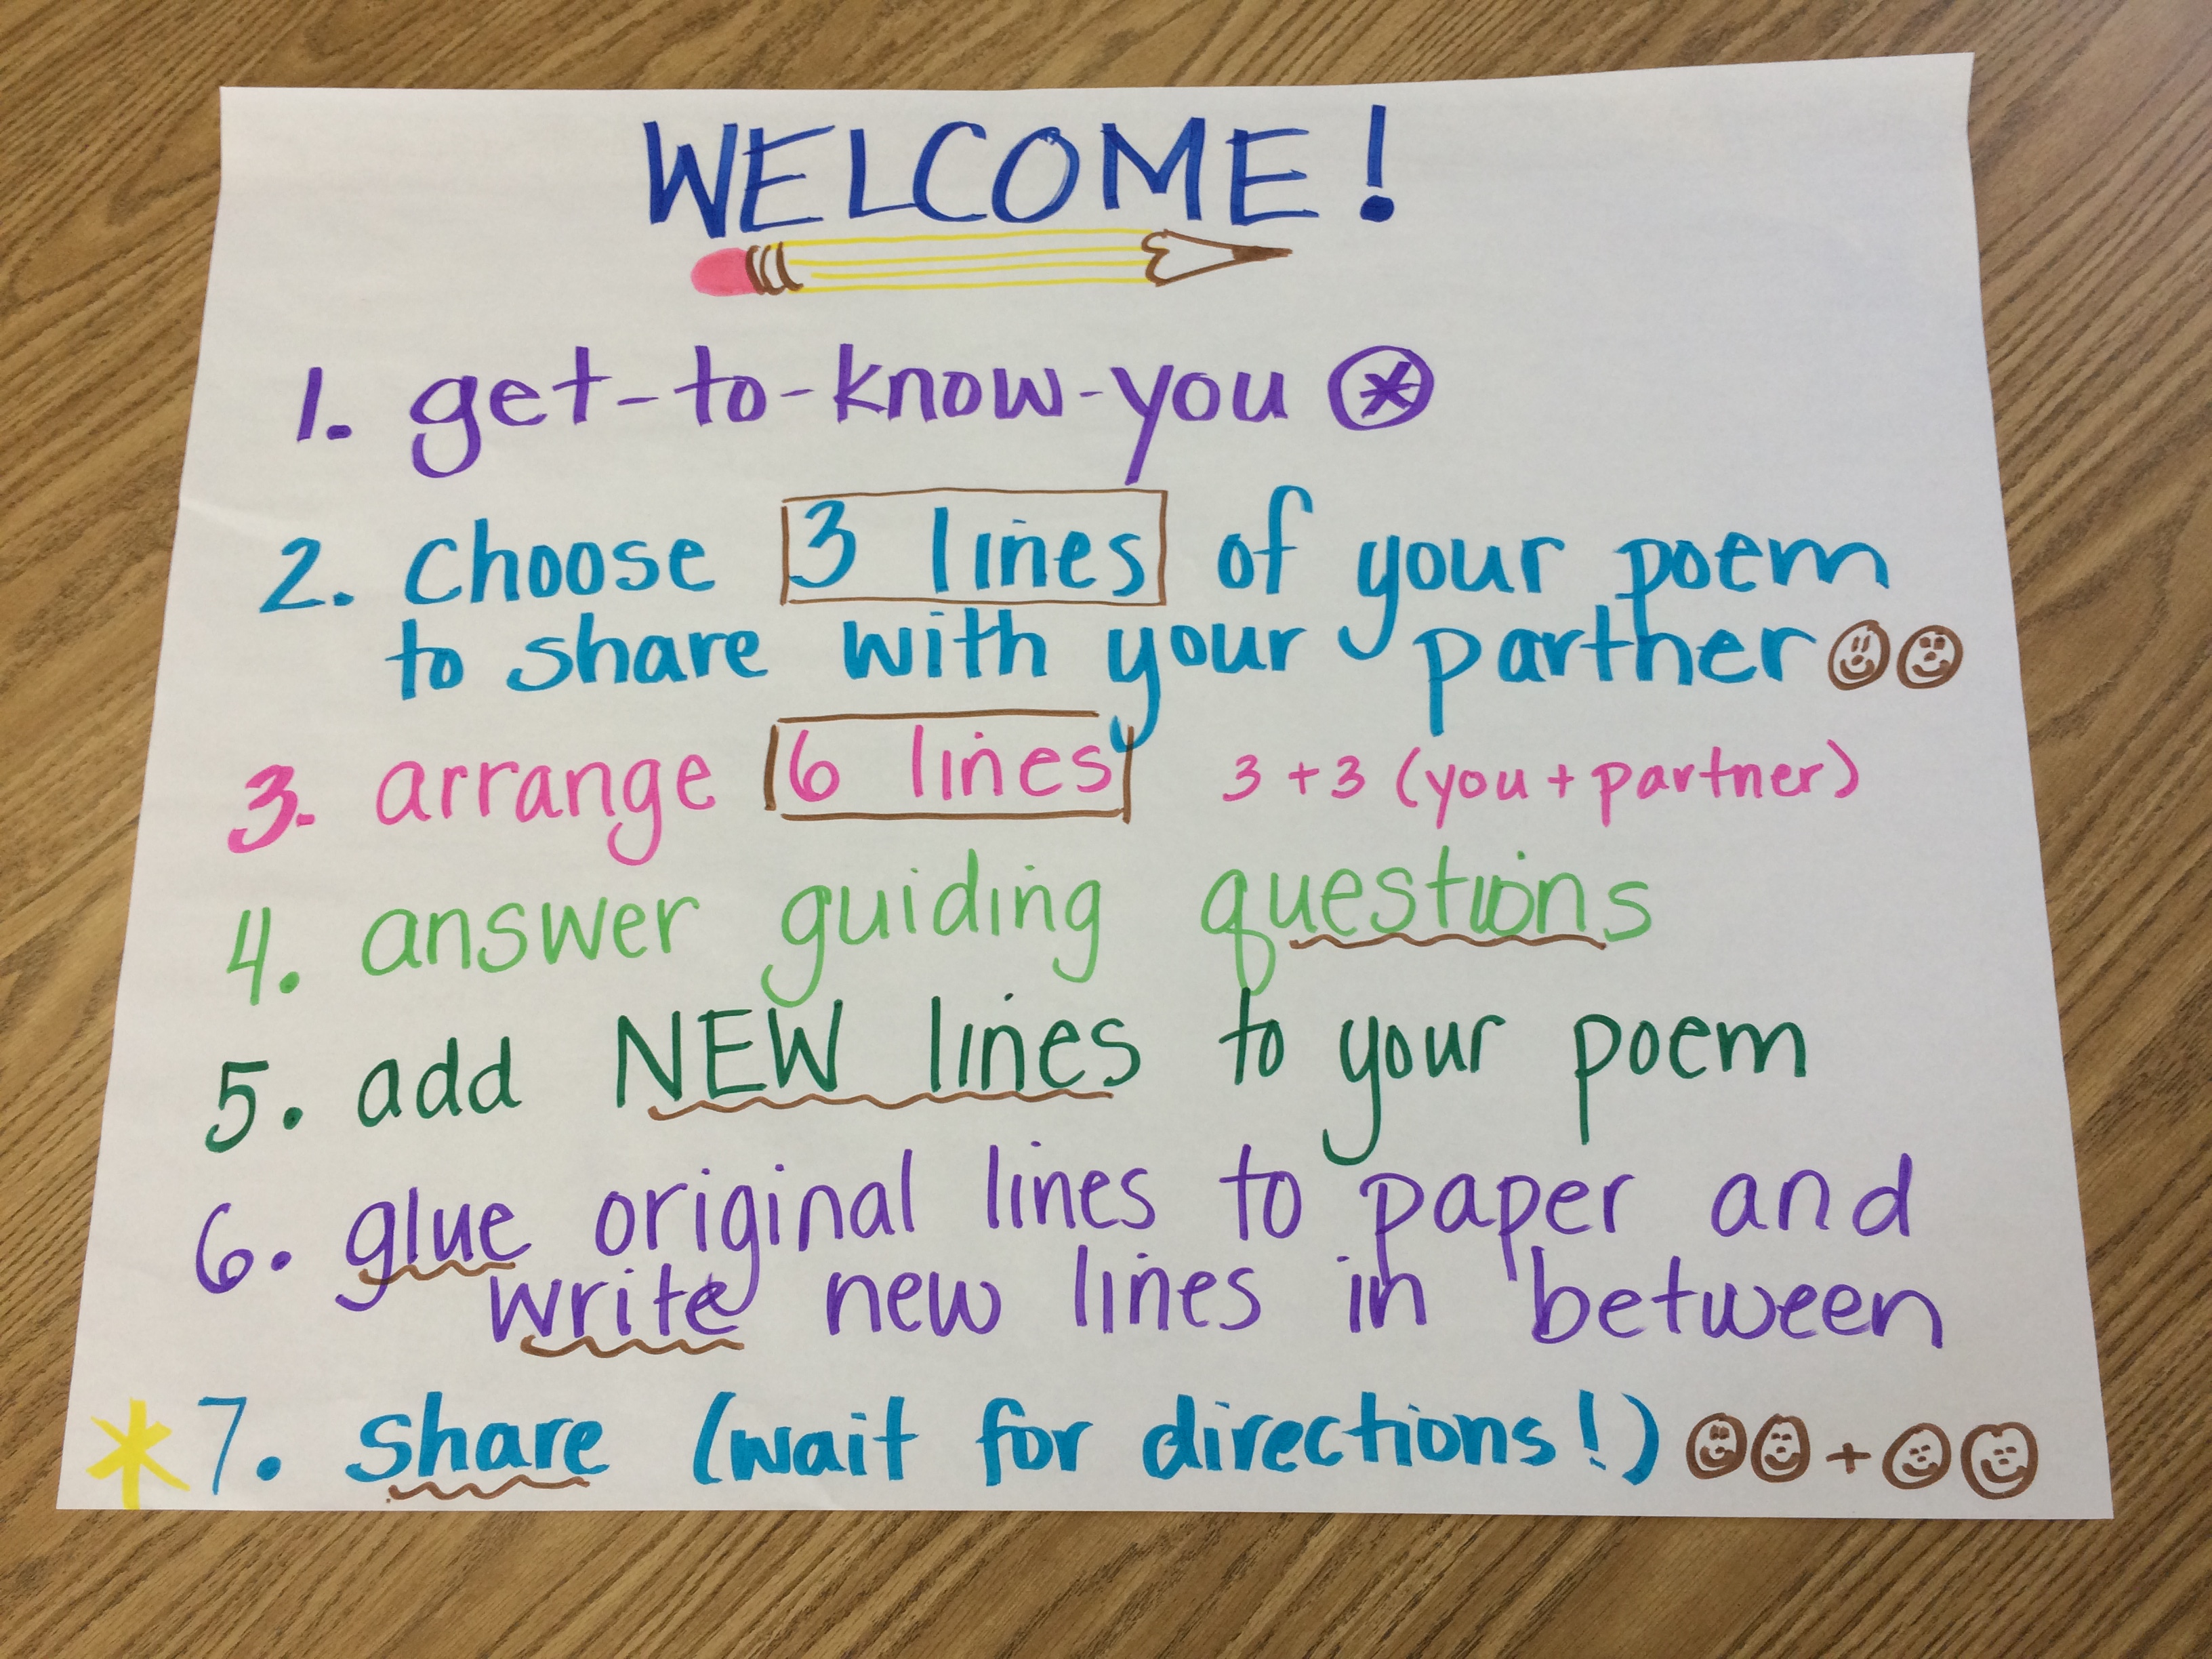 WELCOME!
1. get-to-know-you
2. choose 3 lines of your poem
to share with your partner
3. arrange 6 lines 3 + 3 (you + partner)
4. answer guiding questions
5. add NEW lines to your poem
6. glue original lines to paper and
write new lines in between
7. share (wait for directions!) +